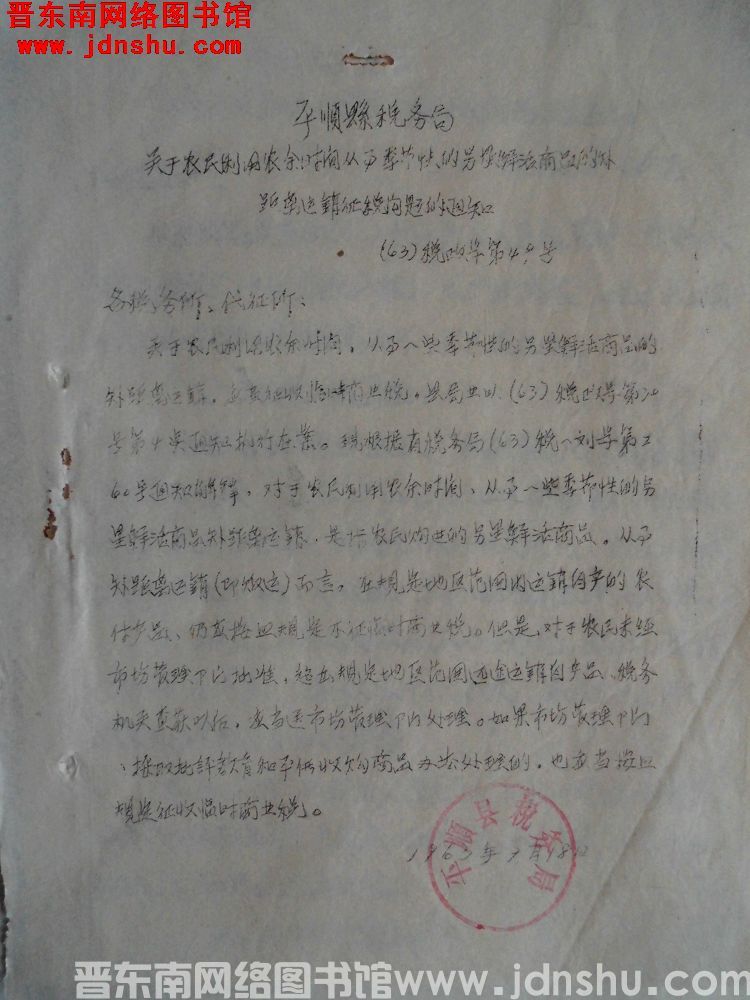 晋东南网络图书馆
www.jdnshu.com
平顺縣税务局
关于农民利用农余时间从事季节性的另星鮮活商品的外
距离运销征税问题的通知
(63)税政字第49号
各税务所、代征所:
关于农民利用农余时间,从事一些季节性的另星鮮活商品的
外距离运销,征收临时商业税,县局业以(63)税政字第
号第 通知执行在案。现根据省税务局(63)税一刘字第2
60号通知的解释,对于农民利用农余时间、从事一些季节性的另
星鮮活商品外距离运销,是指农民购进的另星鮮活商品。从事
外距离运销(即贩运)而言,在规定地区范围内运销自产的农
付产品、仍应按照规定不征临时商业税。但是,对于农民未经
市场管理下门批准,超出规定地区范围 运销自产品,税务
机关查获以后,应当送市场管理下门处理。如果市场管理下门
採取批評教育和平价收购商品办法处理的,也应当按照
规定征收临时商业税。
1963年 月18日
平顺县税务局
晋东南网络图书馆www.jdnshu.com